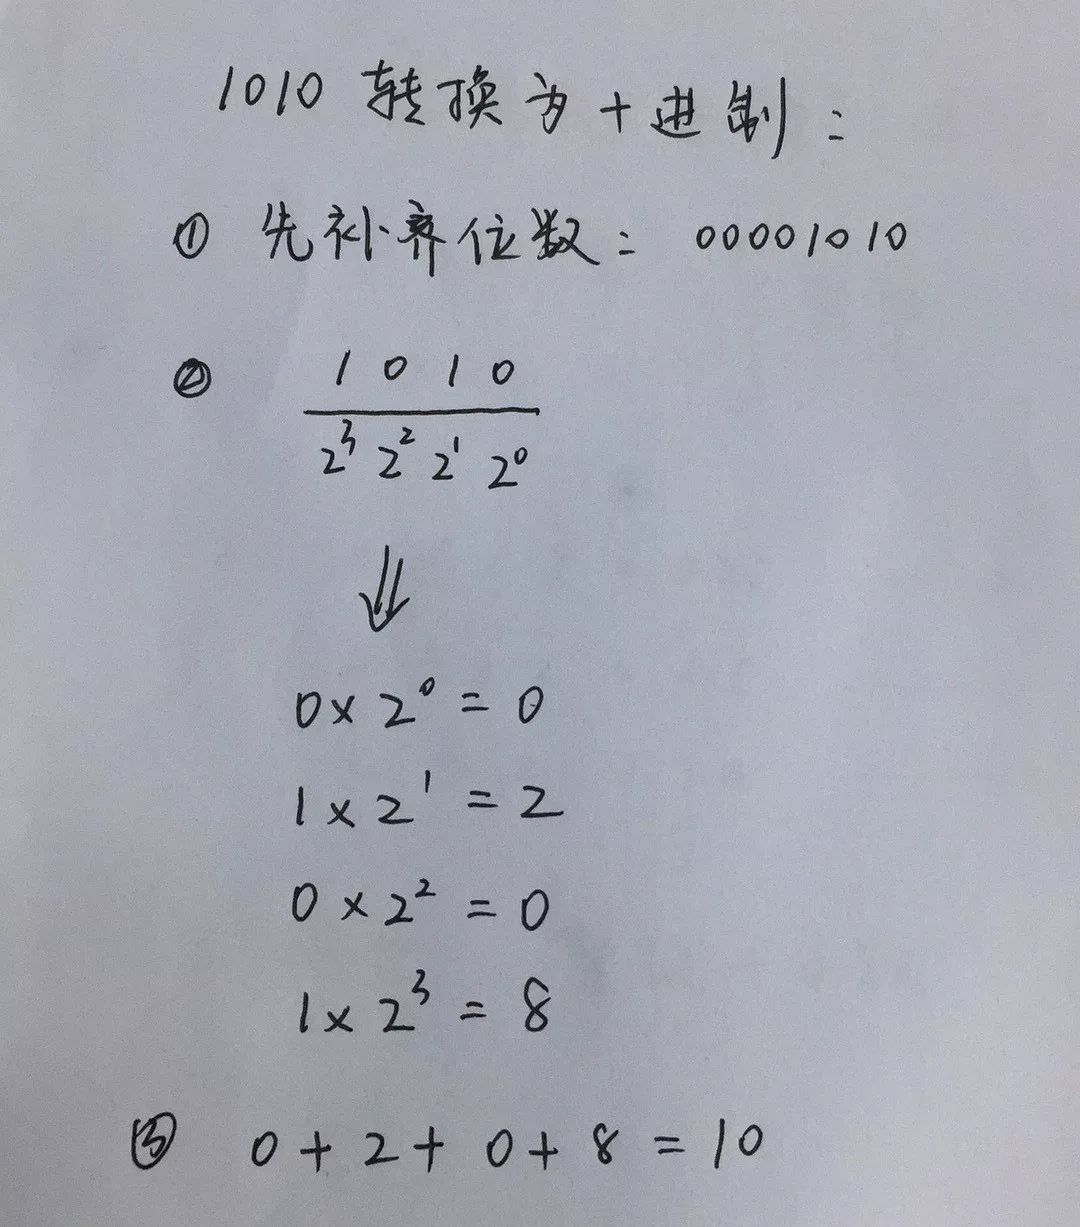 1010 转换为十进制:
① 先补齐位数: 00001010
② 1 0 1 0
2³ 2² 2¹ 2⁰
0 × 2⁰ = 0
1 × 2¹ = 2
0 × 2² = 0
1 × 2³ = 8
③ 0 + 2 + 0 + 8 = 10